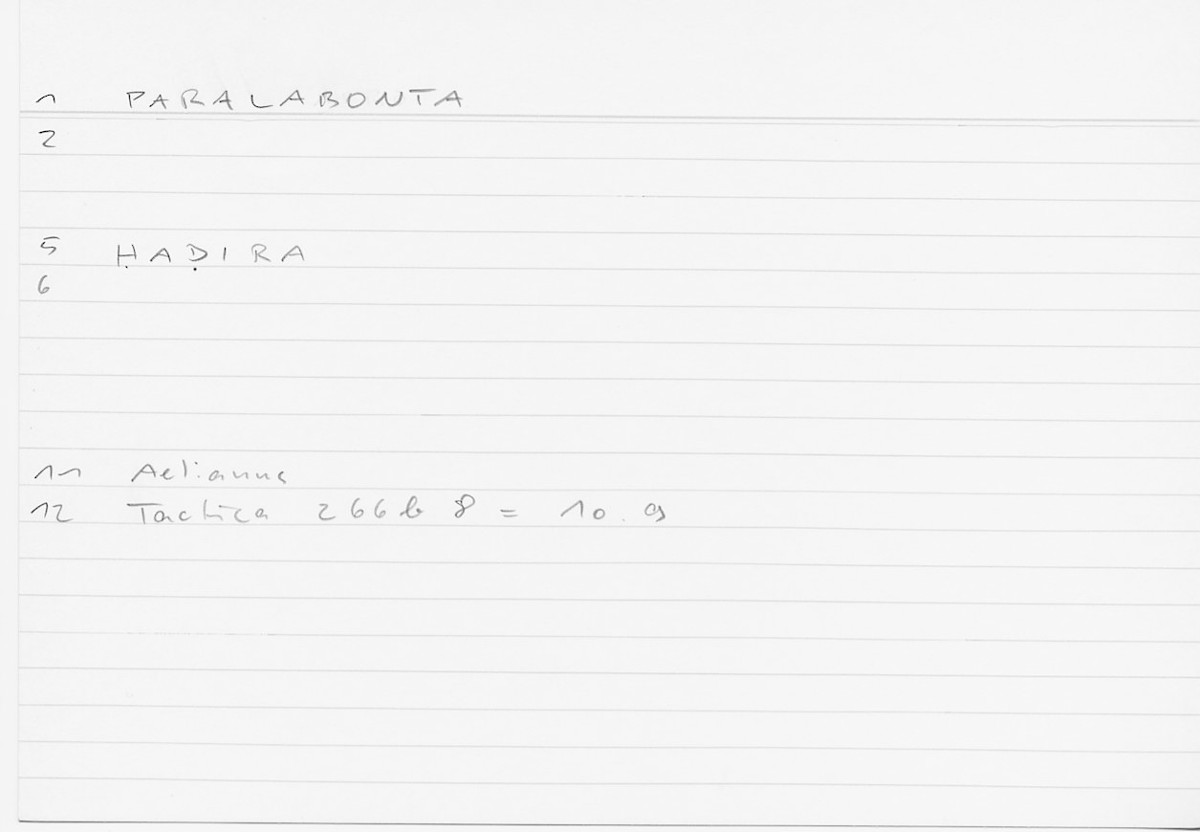 1 PARALABONTA
2
5 ḤAḌIRA
6
11 Aelianus
12 Tactica 266b 8 = 10.9